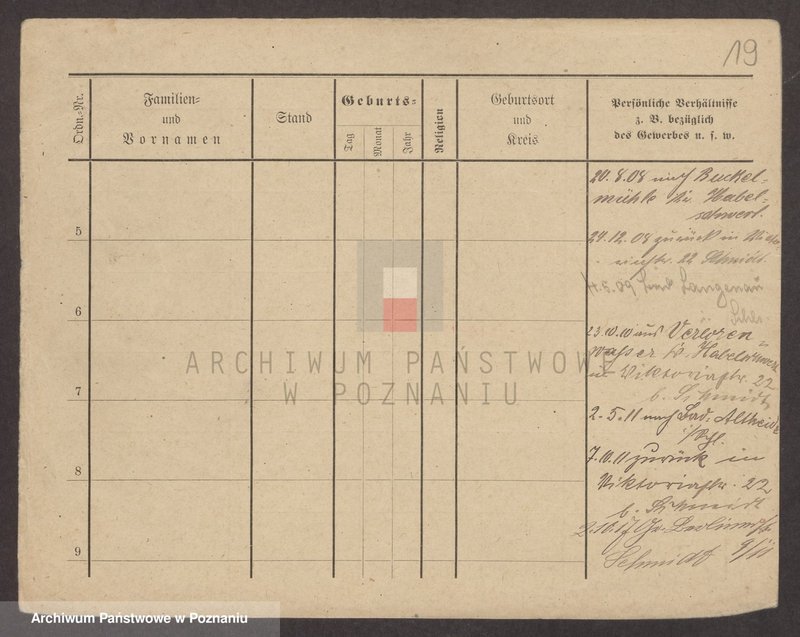 19
Ordn.-Nr.
Familien-
und
Vornamen
Stand
Geburts-
Tag
Monat
Jahr
Religion
Geburtsort
und
Kreis
Persönliche Verhältnisse
z. B. bezüglich
des Gewerbes u. s. w.
20.8.08 nach Buckel-
mühle Kr. Habel-
schwert.
5
24.12.08 zurück in
22 Schmidt.
4.5.09 Bad Langenau
6
Schles.
23.10.10 aus Verloren-
wasser Kr. Habelschwert
in Viktoriastr. 22
7
b. Schmidt
2.5.11 nach Bad Altheide
7.10.11 zurück in
8
Viktoriastr. 22
b. Schmidt
2.10.17 Gr. Berlinerstr.
9
Schmidt 9/II
ARCHIWUM PAŃSTWOWE
W POZNANIU
Archiwum Państwowe w Poznaniu